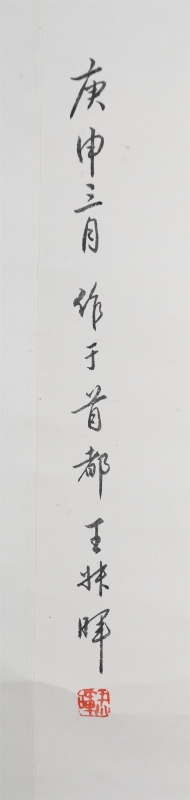 庚申三月作于首都王叔晖